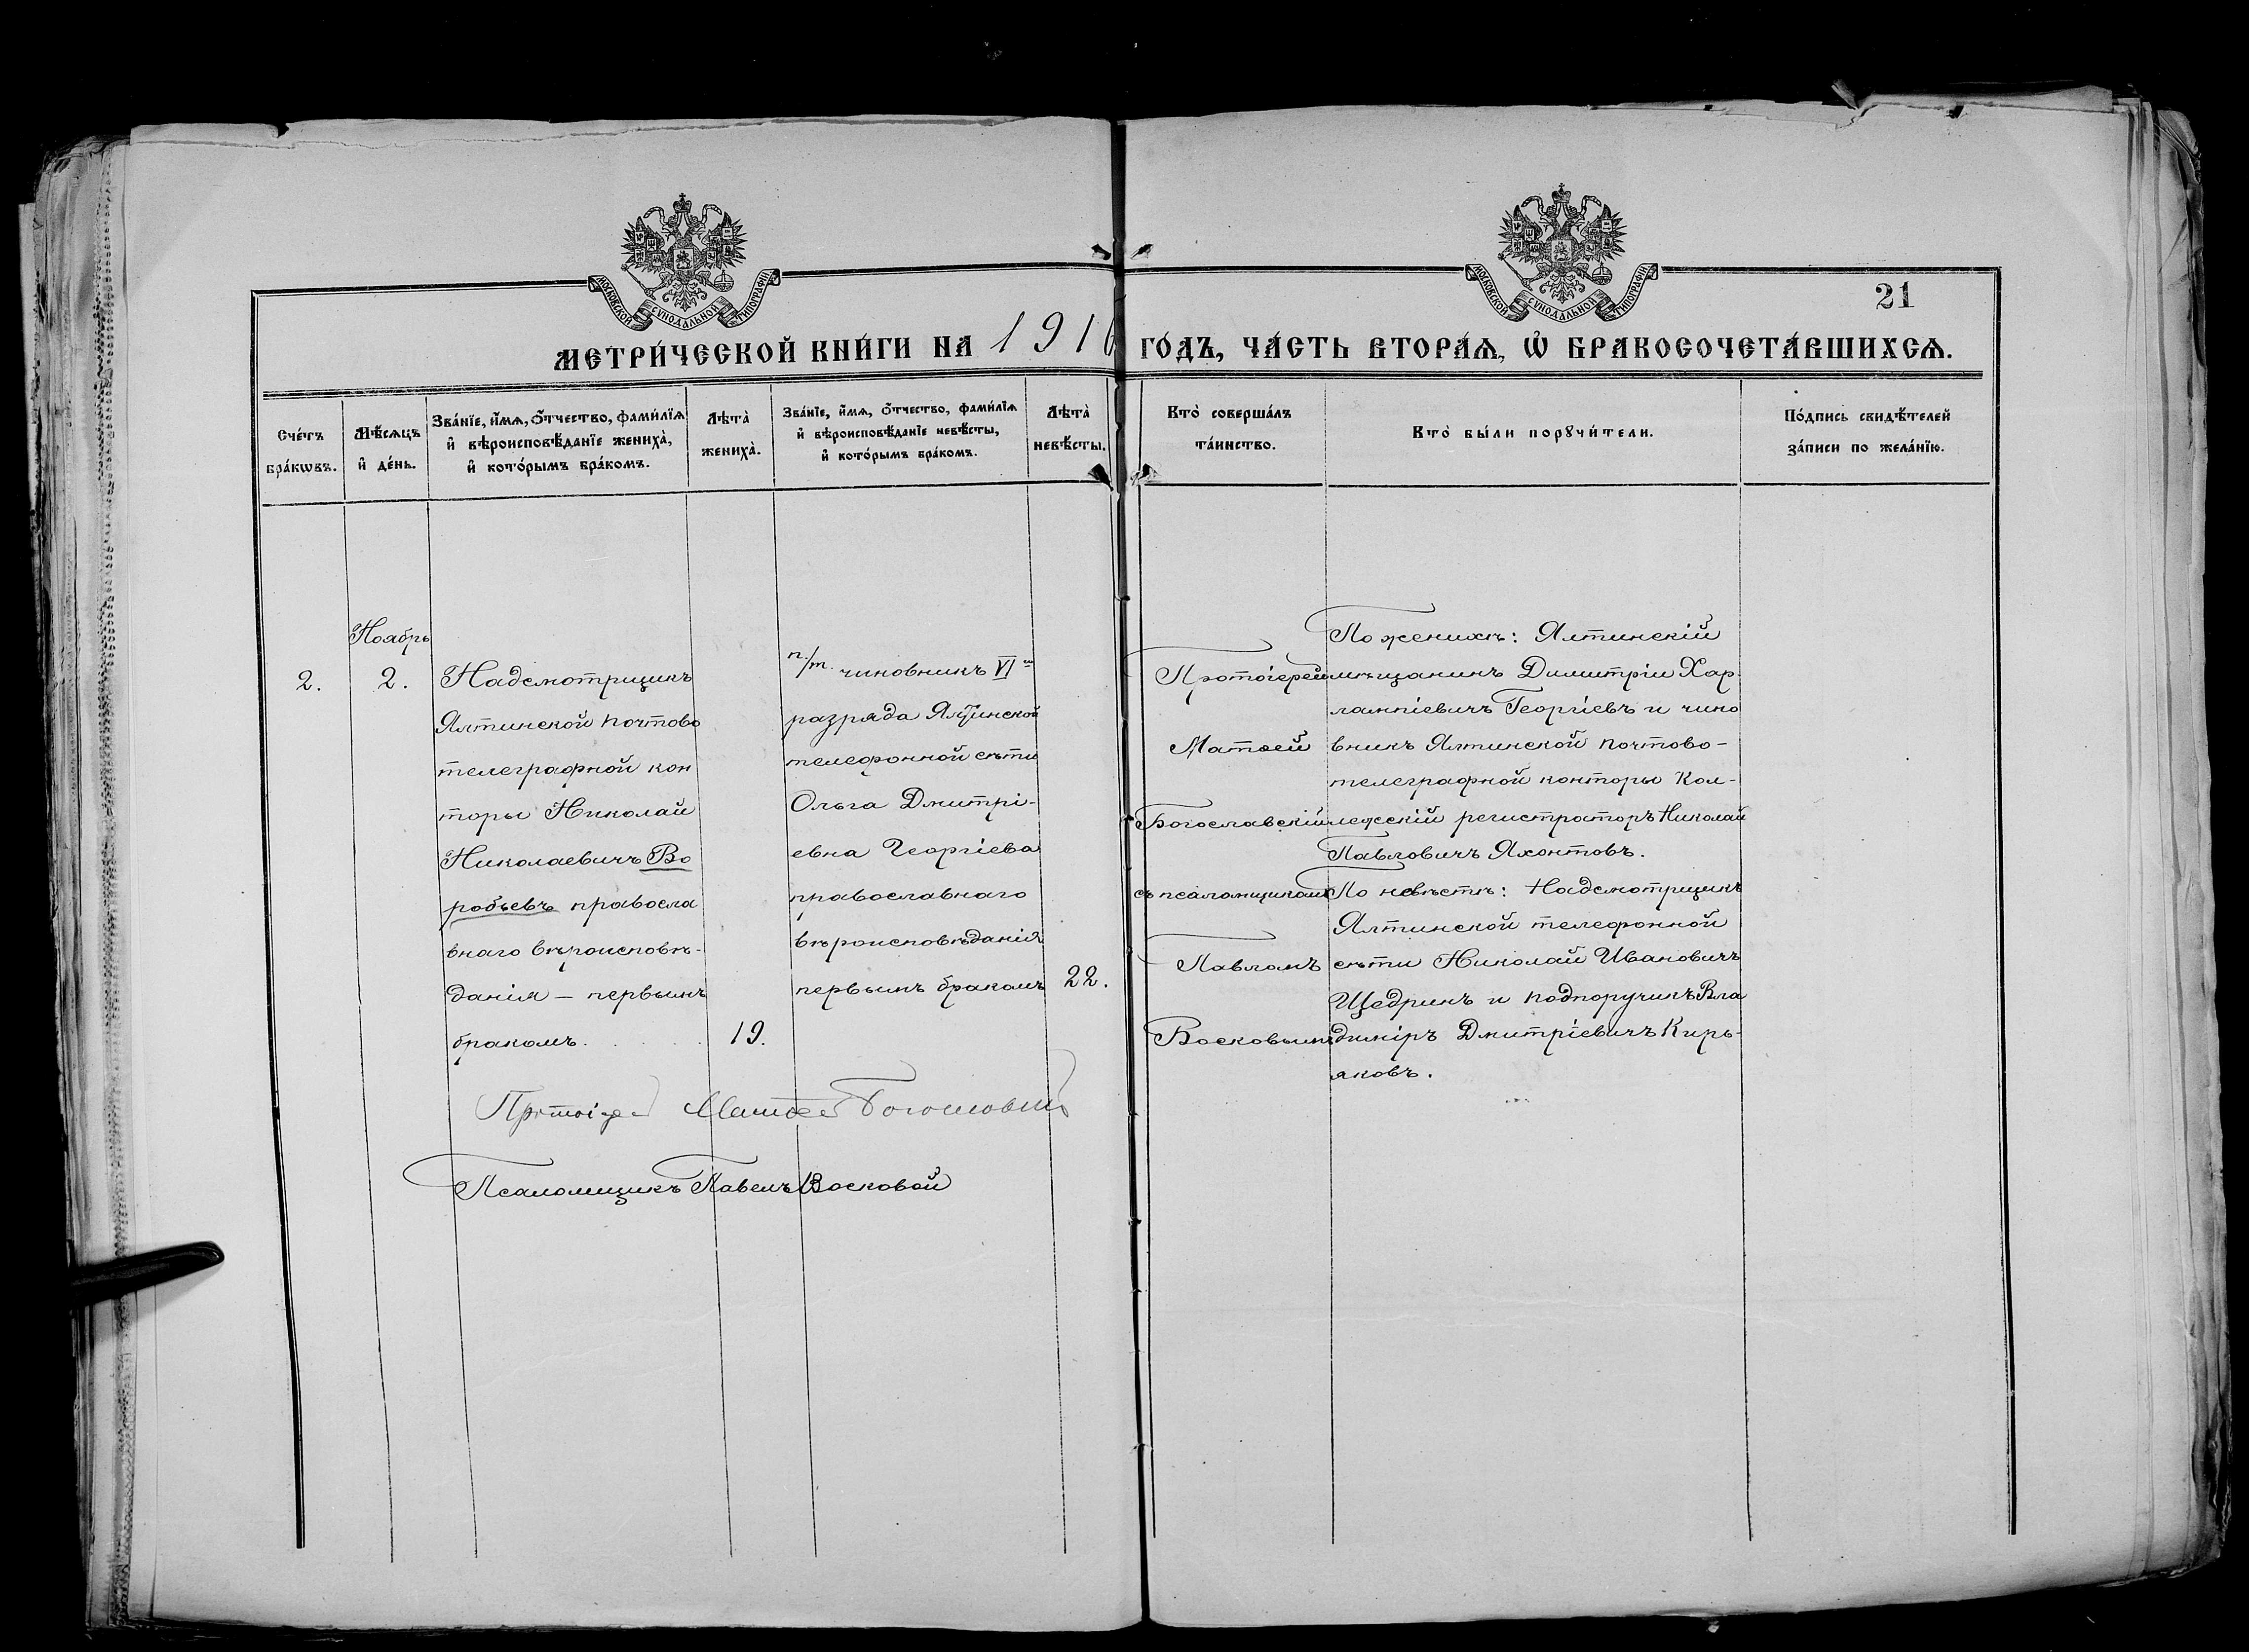 МОСКОВСКОЙ СѴНОДАЛЬНОЙ ТИПОГРАФІИ
МОСКОВСКОЙ СѴНОДАЛЬНОЙ ТИПОГРАФІИ
21
МЕТРИ́ЧЕСКОЙ КНИ́ГИ НА 1916 ГО́ДЪ, ЧА́СТЬ ВТОРА́Ѧ, Ѡ҆ БРАКОСОЧЕТА́ВШИХСѦ.
Сче́тъ бра́кѡвъ.
Мѣ́сѧцъ и҆ де́нь.
Зва́нїе, и҆́мѧ, ѻ҆́тчество, фами́лїѧ и҆ вѣроисповѣ́данїе жениха̀, и҆ кото́рымъ бра́комъ.
Лѣта̀ жениха̀.
Зва́нїе, и҆́мѧ, ѻ҆́тчество, фами́лїѧ и҆ вѣроисповѣ́данїе невѣ́сты, и҆ кото́рымъ бра́комъ.
Лѣта̀ невѣ́сты.
Кто̀ соверша́лъ та́инство.
Кто̀ бы́ли порꙋчи́тели.
По́дпись свидѣ́телей за́писи по жела́нїю.
2.
Ноябрь
2.
Надсмотрщикъ
Ялтинской почтово
телеграфной кон
торы Николай
Николаевичъ Во
робьевъ правосла
внаго вѣроисповѣ-
данія — первымъ
бракомъ.
19.
п./т. чиновникъ VI го
разряда Ялтинской
телефонной сѣти
Ольга Дмитрі-
евна Георгіева
православнаго
вѣроисповѣданія
первымъ бракомъ
22.
Протоіерей
Матѳей
Богославскій
съ псаломщикомъ
Павломъ
Восковымъ
По женихѣ: Ялтинскій
мѣщанинъ Димитрій Хар
лампіевичъ Георгіевъ и чино
вникъ Ялтинской почтово-
телеграфной конторы Кол-
лежскій регистраторъ Николай
Павловичъ Яхонтовъ.
По невѣстѣ: Надсмотрщикъ
Ялтинской телефонной
сѣти Николай Ивановичъ
Щедринъ и подпоручикъ Вла
диміръ Дмитріевичъ Кирь-
яковъ.
Протоіерей Матѳей Богословскій
Псаломщикъ Павелъ Восковой